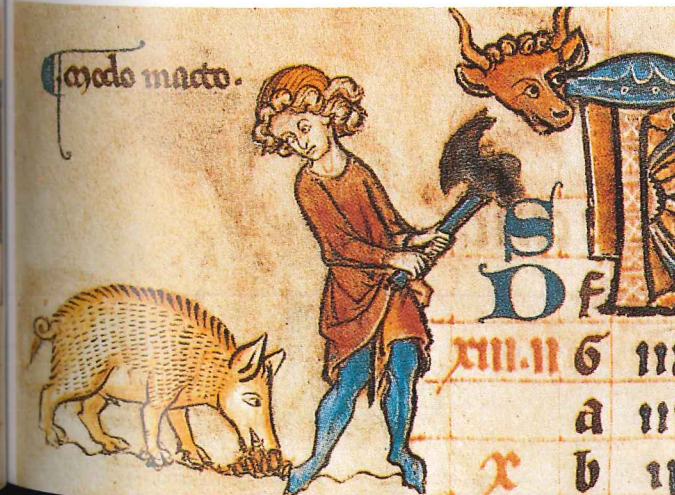 modo macto.
S
D f
xiii·ii G
a
x b